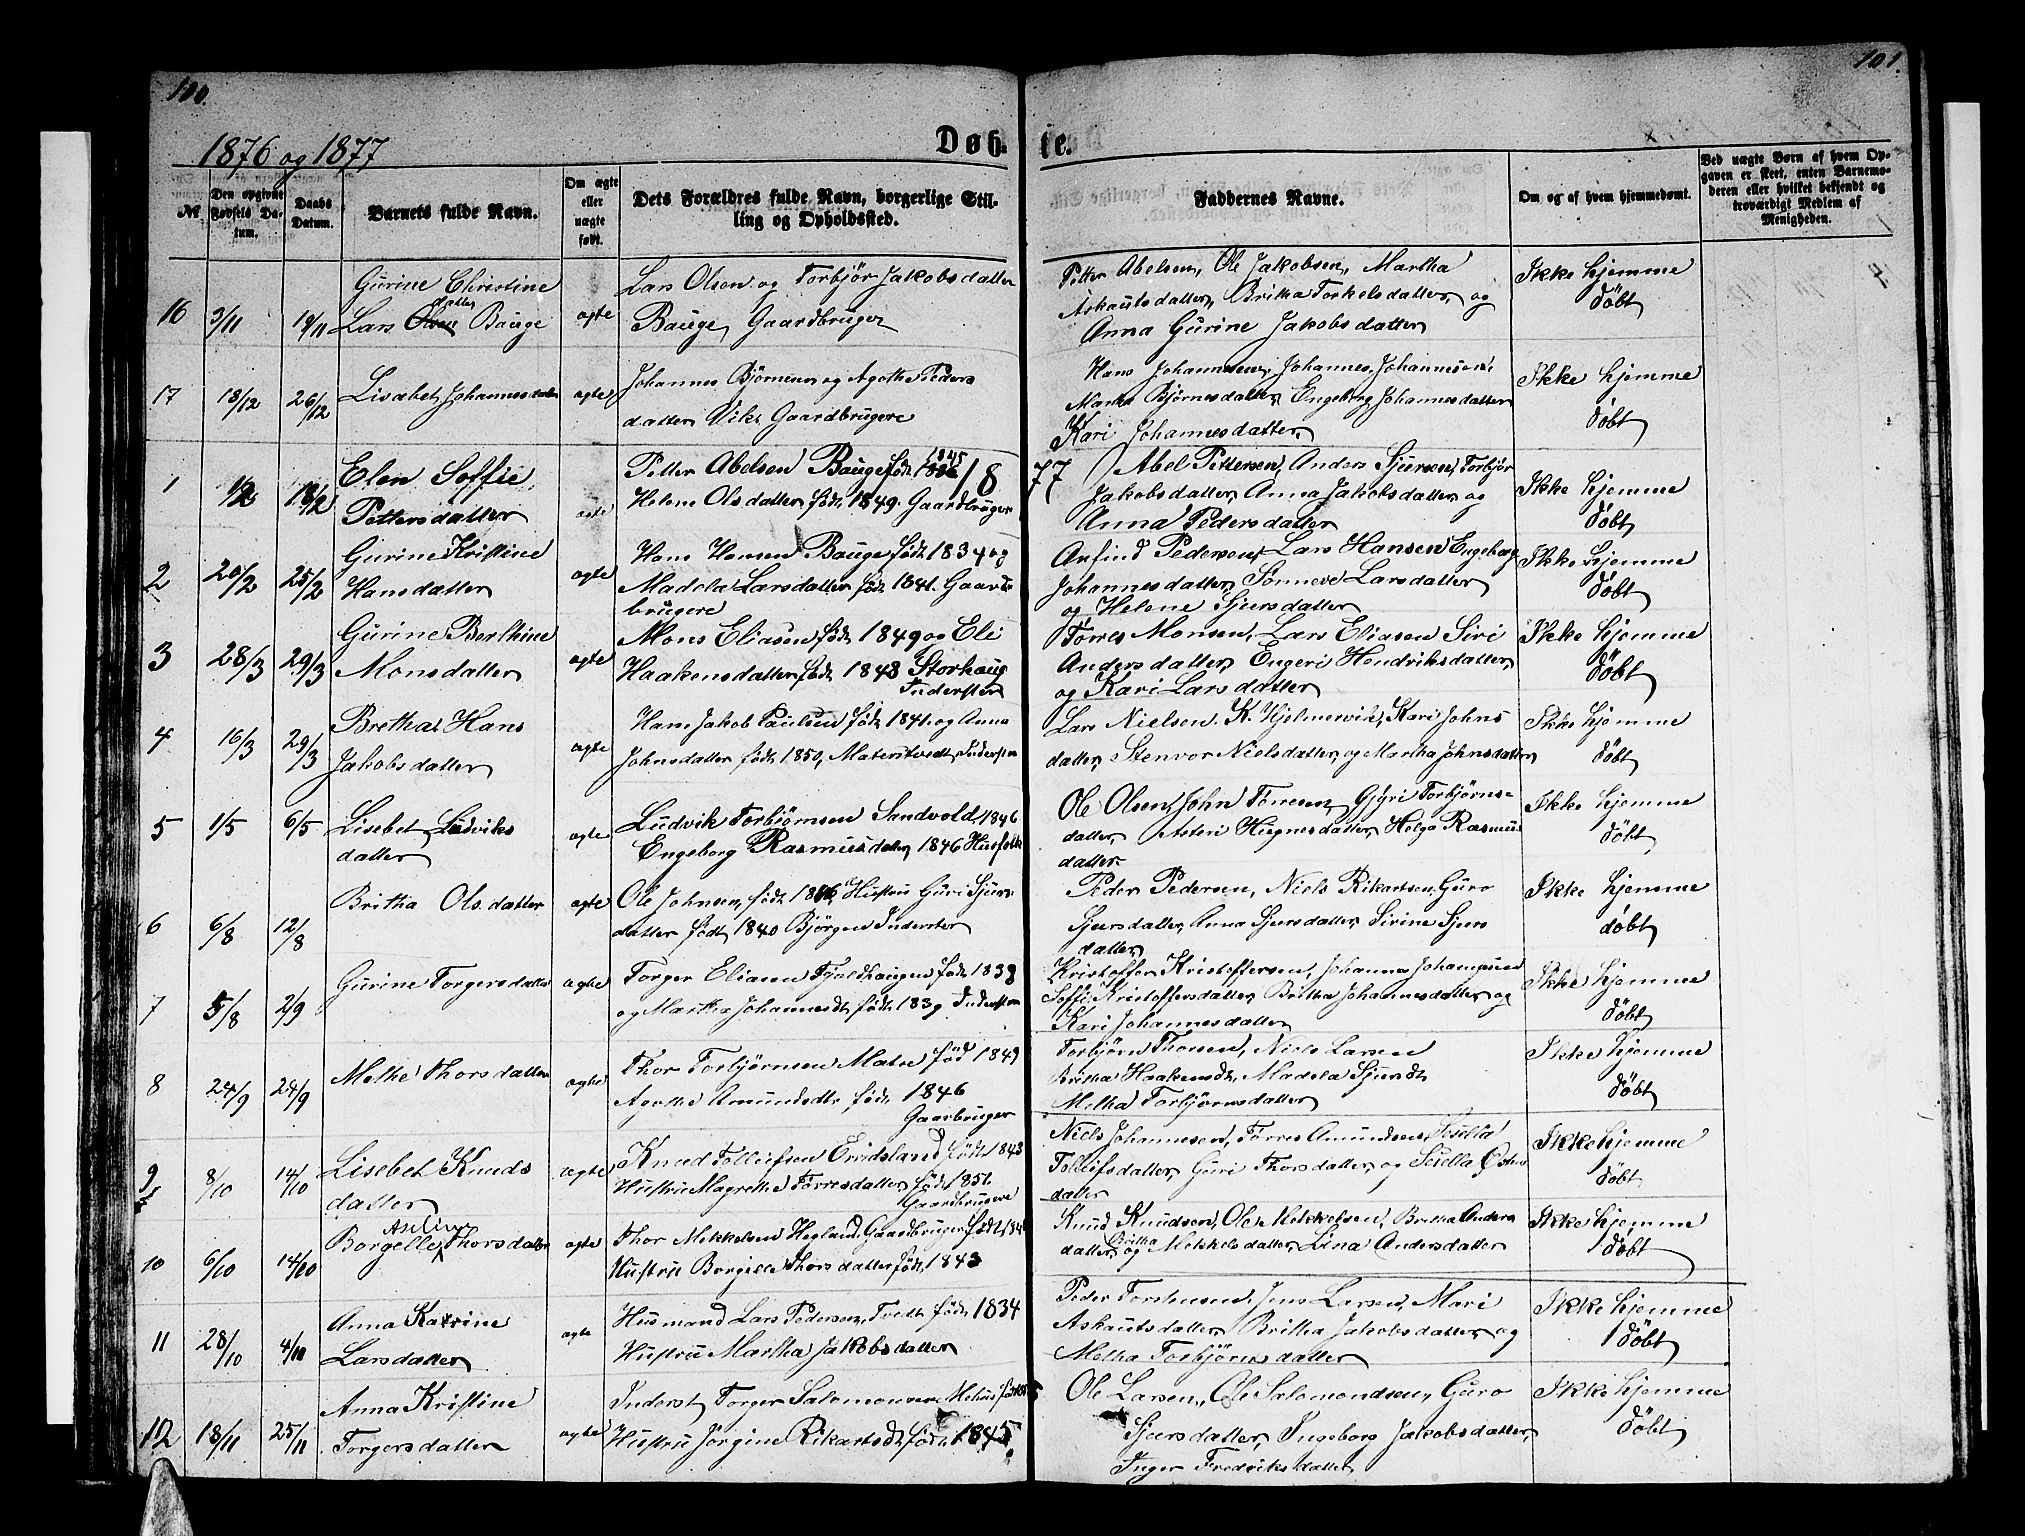 100.
101.
1876 og 1877
Døb-
te.
№
Den opgivne Fødsels Da-tum.
Daabs Datum.
Barnets fulde Navn.
Om ægte eller uægte født.
Dets Forældres fulde Navn, borgerlige Stil-
ling og Opholdssted.
Faddernes Navne.
Om og af hvem hjemmedøbt.
Ved uægte Børn af hvem Op-
gaven er skeet, enten Barnemo-
deren eller hvilket bekjendt og
troværdigt Medlem af
Menigheden.
16 3/11 19/11 Gurine Christine
Lars datter Bauge
ægte
Lars Olsen og Torbjør Jakobsdatter
Bauge, Gaardbruger
Petter Abelsen, Ole Jakobsen, Martha
Askautsdatter, Britha Torkelsdatter, og
Anna Gurine Jakobsdatter
Ikke hjemme
døbt
17 18/12 26/12 Lisabet Johannesdatter
ægte
Johannes Bjørnsen og Agothe Peders
datter Vik, Gaardbrugere
Hans Johannesen, Johannes Johannesen,
Martha Bjørnesdatter, Engeborg Johannesdatter
Kari Johannesdatter,
Ikke hjemme
døbt
1877
1 1/2 18/2 Elen Soffie
Pettersdatter
ægte
Petter Abelsen Bauge født 1845
Helene Olsdatter, født 1849. Gaardbruger
Abel Pettersen, Anders Sjursen, Torbjør
Jakobsdatter, Anna Jakobsdatter, og
Anna Pedersdatter
Ikke hjemme
døbt
2 20/2 25/2 Gurine Kristine
Hansdatter
ægte
Hans Hansen Bauge født 1834 og
Madela Larsdatter født 1841. Gaard
brugere
Anfind Pedersen, Lars Hansen Engeborg
Johannesdatter, Sønneve Larsdatter
og Helene Sjursdatter
Ikke hjemme
døbt
3 28/3 29/3 Gurine Berthine
Monsdatter
ægte
Mons Eliasen født 1849 og Eli
Haakensdatter født 1848 Storhaug
Inderster
Tørres Monsen, Lars Eliasen Siri
Andersdatter, Engeri Hendriksdatter,
og Kari Larsdatter
Ikke hjemme
døbt
4 16/3 29/3 Bretha Hans
Jakobsdatter
ægte
Hans Jakob Paulsen født 1841. og Anna
Johnsdatter født 1850, Inderster
Lars Nielsen. K. Hjelmervik, Kari Johns
datter, Stenvor Nielsdatter, og Martha Johnsdatter
Ikke hjemme
døbt
5 1/5 6/5 Lisebet Ludviks
datter
ægte
Ludvik Torbjørnsen Sandvold 1846
Engeborg Rasmusdatter 1846 Husfolk
Ole Olsen, John Tørresen, Gjyri Torbjørns-
datter, Asteri Hugnesdatter, Helga Rasmus
datter.
Ikke hjemme
døbt
6 6/8 12/8 Britha Olsdatter
ægte
Ole Johnsen, født 1846, Hustru Guri Sjurs-
datter født 1840 Bjørgen Inderster
Peder Pedersen, Niels Rikartsen, Guro
Sjursdatter, Anna Sjursdatter, Sirine Sjurs
datter
Ikke hjemme
døbt
7 5/8 2/9 Gurine Torgersdatter
ægte
Torger Eliasen Fjeldhaugen født 1838
og Martha Johannesdt. født 1839 Inderster
Kristoffer Kristoffersen, Johannes Johannesen
Soffi Kristoffersdatter, Britha Johannesdatter, og
Kari Johannesdatter
Ikke hjemme
døbt
8 24/9 24/9 Methe Thorsdatter
ægte
Thor Torbjørnsen Matre født 1849
Agothe Amundsdtr. født 1846
Gaarbruger
Torbjørn Thorsen, Niels Larsen
Britha Haakensdt, Madela Sjursdt.
Metha Torbjørnsdatter
Ikke hjemme
døbt
9 8/10 14/10 Lisebet Knuds
datter
ægte
Knud Tollefsen Eridsland født 1848
Hustru Magrethe Tørresdatter, født 1851.
Gaardbrugere
Niels Johannesen, Tørres Amundsen, Sesella
Tollefsdatter, Guri Thorsdatter, og Sesella Østen
datter
Ikke hjemme
døbt
10 6/10 14/10 Borgelle Aseline Thorsdatter
ægte
Thor Mekkelsen Hegland, Gaardbruger, født 184
Hustru Borgille Thorsdatter født 1843
Knud Knudsen, Ole Mekkelsen, Britha Anders
datter, og Britha Mekkelsdatter, Lina Andersdatter
Ikke hjemme
døbt
11 28/10 4/11 Anna Katrine
Larsdatter
ægte
Husmand Lars Pedersen, Tveit født 1834
Hustru Martha Jakobsdatter
Peder Torstensen, Jens Larsen, Mari
Askautsdatter, Britha Jakobsdatter, og
Metha Torbjørnsdatter
Ikke hjemme
døbt
12 18/11 25/11 Anna Kristine
Torgersdatter
ægte
Inderst Torger Salomonsen Mehus født
Hustru Jørgine Rikartsdt. født 1845.
Ole Larsen, Ole Salomondsen, Guro
Sjursdatter, Ingeborg Jakobsdatter,
Inger Fredriksdatter
Ikke hjemme
døbt